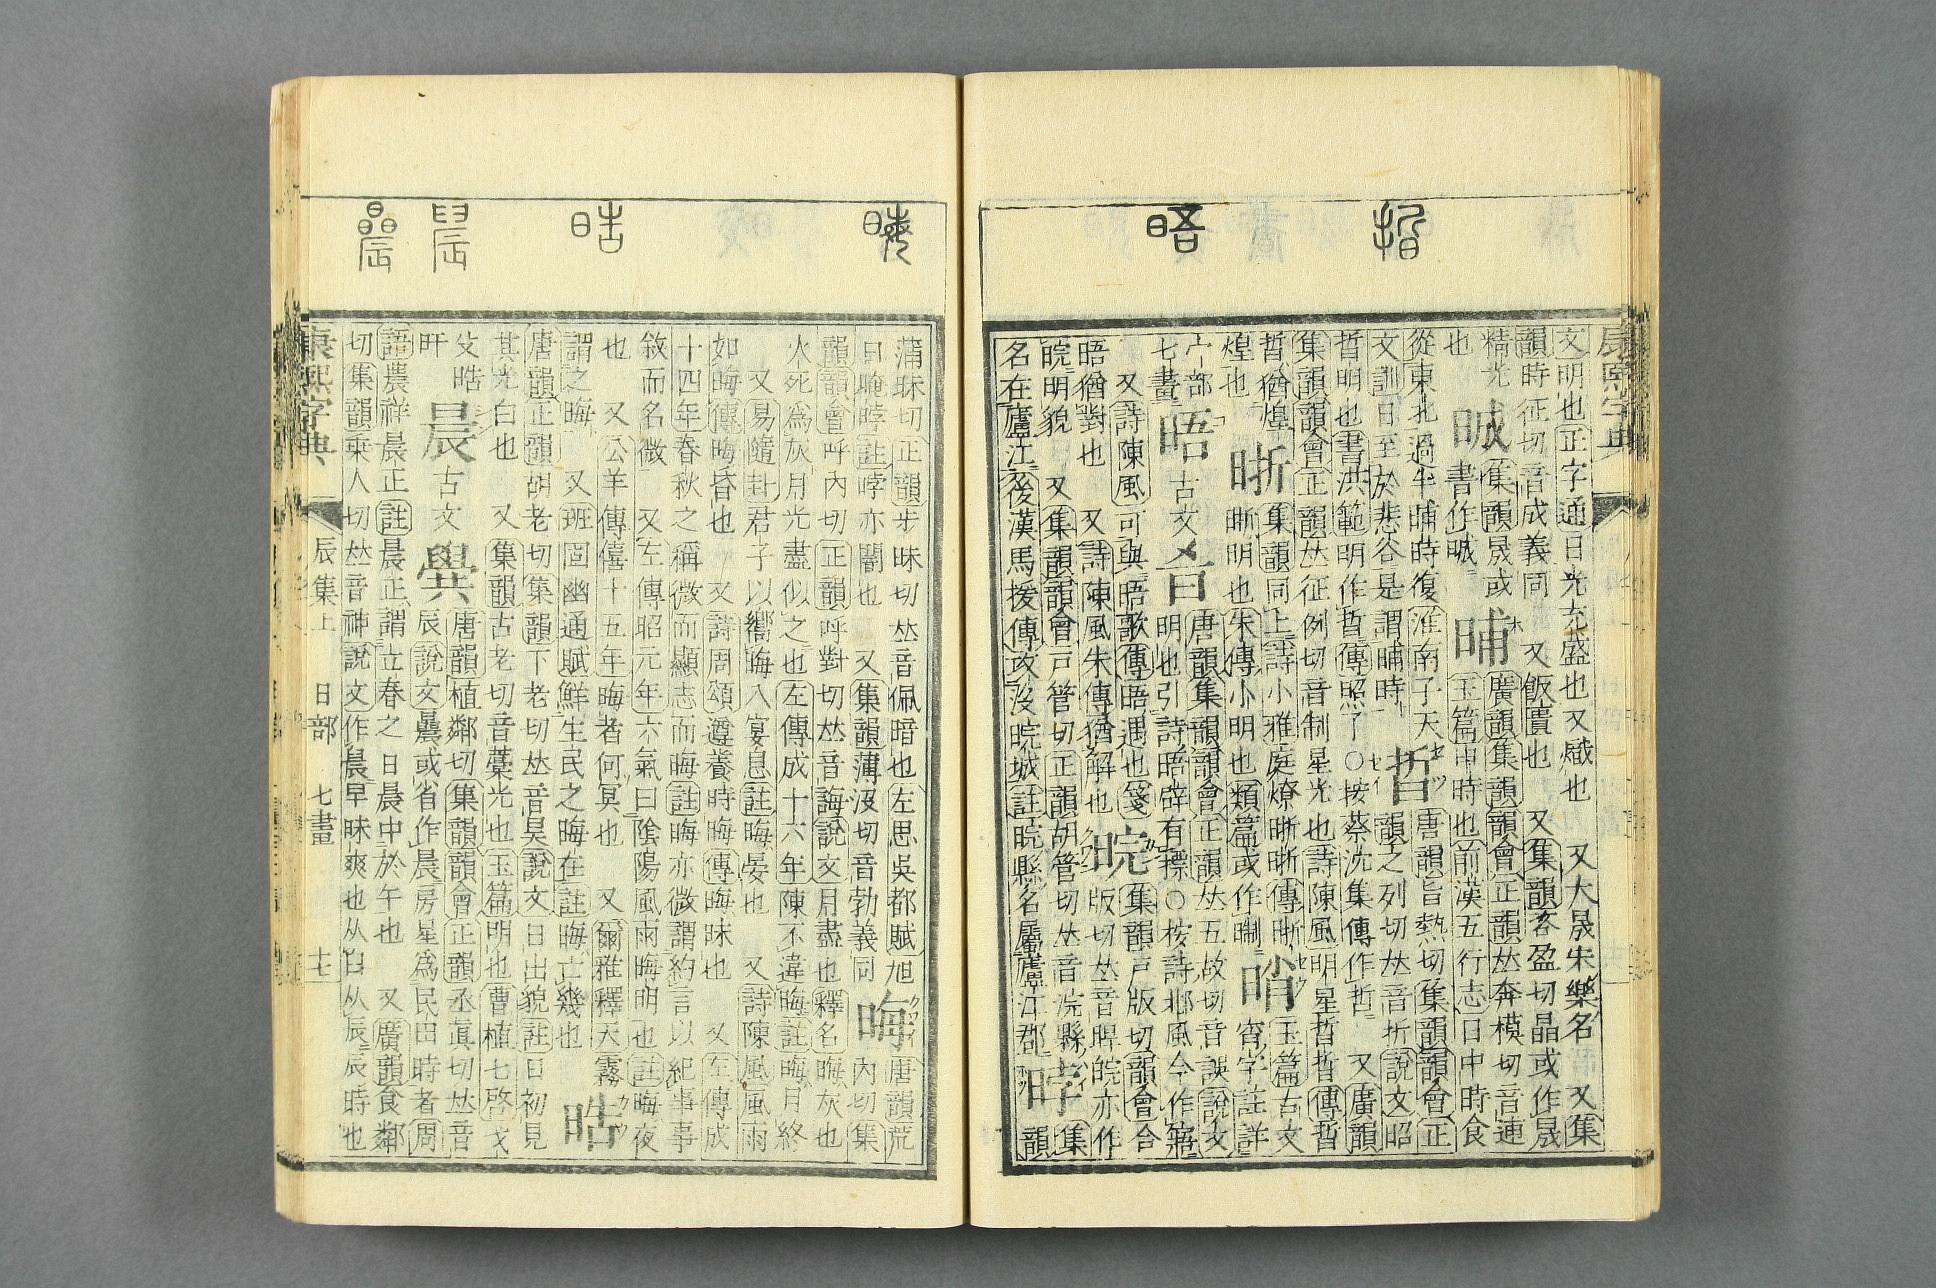 晧
晤
康熙字典
文明也正字通日光充盛也又熾也 又大晟朱樂名 又集
韻時征切音成義同 又飯貴也 又集韻客盈切晶或作晟
精光 晠 集韻晟或 晡 廣韻集韻韻會正韻𠀤奔模切音逋
也 書作晠 玉篇申時也前漢五行志日中時食
從東北過半晡時復淮南子天
文訓日至於悲谷是謂晡時 晢 唐韻旨熱切集韻韻會正
韻之列切𠀤音折說文昭
晢明也書洪範明作晢傳照了○按蔡沈集傳作哲 又廣韻
集韻韻會正韻𠀤征例切音制星光也詩陳風明星晢晢傳晢
晢猶煌 晣 集韻同上詩小雅庭燎晣晣傳晣
煌也 晣明也朱傳小明也類篇或作晣 哨 玉篇古文
宵字註詳
宀部
七畫 晤 古文 唐韻集韻韻會正韻𠀤五故切音誤說文
明也引詩晤辟有摽○按詩邶風今作寤
又詩陳風可與晤歌傳晤遇也箋
晤猶對也 又詩陳風朱傳猶解也 晥 集韻戸版切韻會合
版切𠀤音睅皖亦作
晥明貌 又集韻韻會戸管切正韻胡管切𠀤音浣縣
名在廬江又後漢馬援傳攻沒晥城註晥縣名屬廬江郡 𣇧 集
韻
蒲昧切正韻步昧切𠀤音佩暗也左思吳都賦旭
日晻𣇧註𣇧亦闇也 又集韻薄沒切音勃義同 晦 唐韻荒
內切集
韻韻會呼內切正韻呼對切𠀤音誨說文月盡也釋名晦灰也
火死爲灰月光盡似之也左傳成十六年陳不違晦註晦月終
又易隨卦君子以嚮晦入宴息註晦晏也 又詩陳風風雨
如晦傳晦昏也 又詩周頌遵養時晦傳晦昧也 又左傳成
十四年春秋之稱微而顯志而晦註晦亦微謂約言以紀事事
敘而名微 又左傳昭元年六氣曰陰陽風雨晦明也註晦夜
也 又公羊傳僖十五年晦者何冥也 又爾雅釋天霧
謂之晦 又班固幽通賦鮮生民之晦在註晦亡幾也 晧
唐韻正韻胡老切集韻下老切𠀤音昊說文日出貌註日初見
其光白也 又集韻古老切音藁光也玉篇明也曹植七啓戈
殳晧
旰 晨 古文 唐韻植鄰切集韻韻會正韻丞眞切𠀤音
辰說文曟或省作晨房星爲民田時者周
語農祥晨正註晨正謂立春之日晨中於午也 又廣韻食鄰
切集韻乗人切𠀤音神說文作晨早昧爽也从臼从辰辰時也
康熙字典 辰集上 日部 七畫 十七